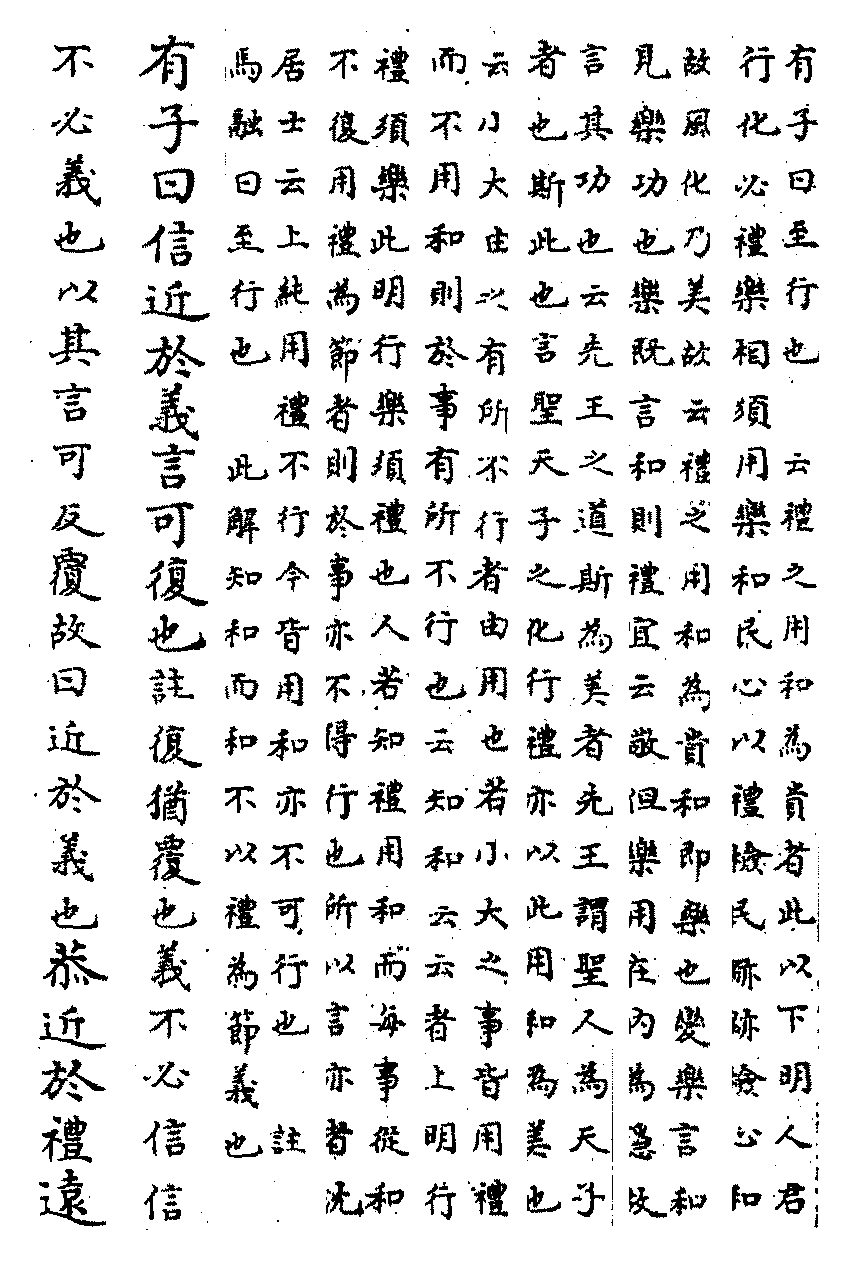 有子曰至行也　云禮之用和為貴者此以下明人君
行化必禮樂相須用樂和民心以禮檢民跡跡檢心和
故風化乃美故云禮之用和為貴和即樂也變樂言和
見樂功也樂既言和則禮宜云敬但樂用在內為隱故
言其功也云先王之道斯為美者先王謂聖人為天子
者也斯此也言聖天子之化行禮亦以此用和為美也
云小大由以有所不行者由用也若小大之事皆用禮
而不用和則於事有所不行也云知和云云者上明行
禮須樂此明行樂須禮也人若知禮用和而每事從和
不復用禮為節者則於事亦不得行也所以言亦者沈
居士云上純用禮不行今皆用和亦不可行也　註
馬融曰至行也　此解知和而和不以禮為節義也
有子曰信近於義言可復也註復猶覆也義不必信信
不必義也以其言可反覆故曰近於義也恭近於禮遠